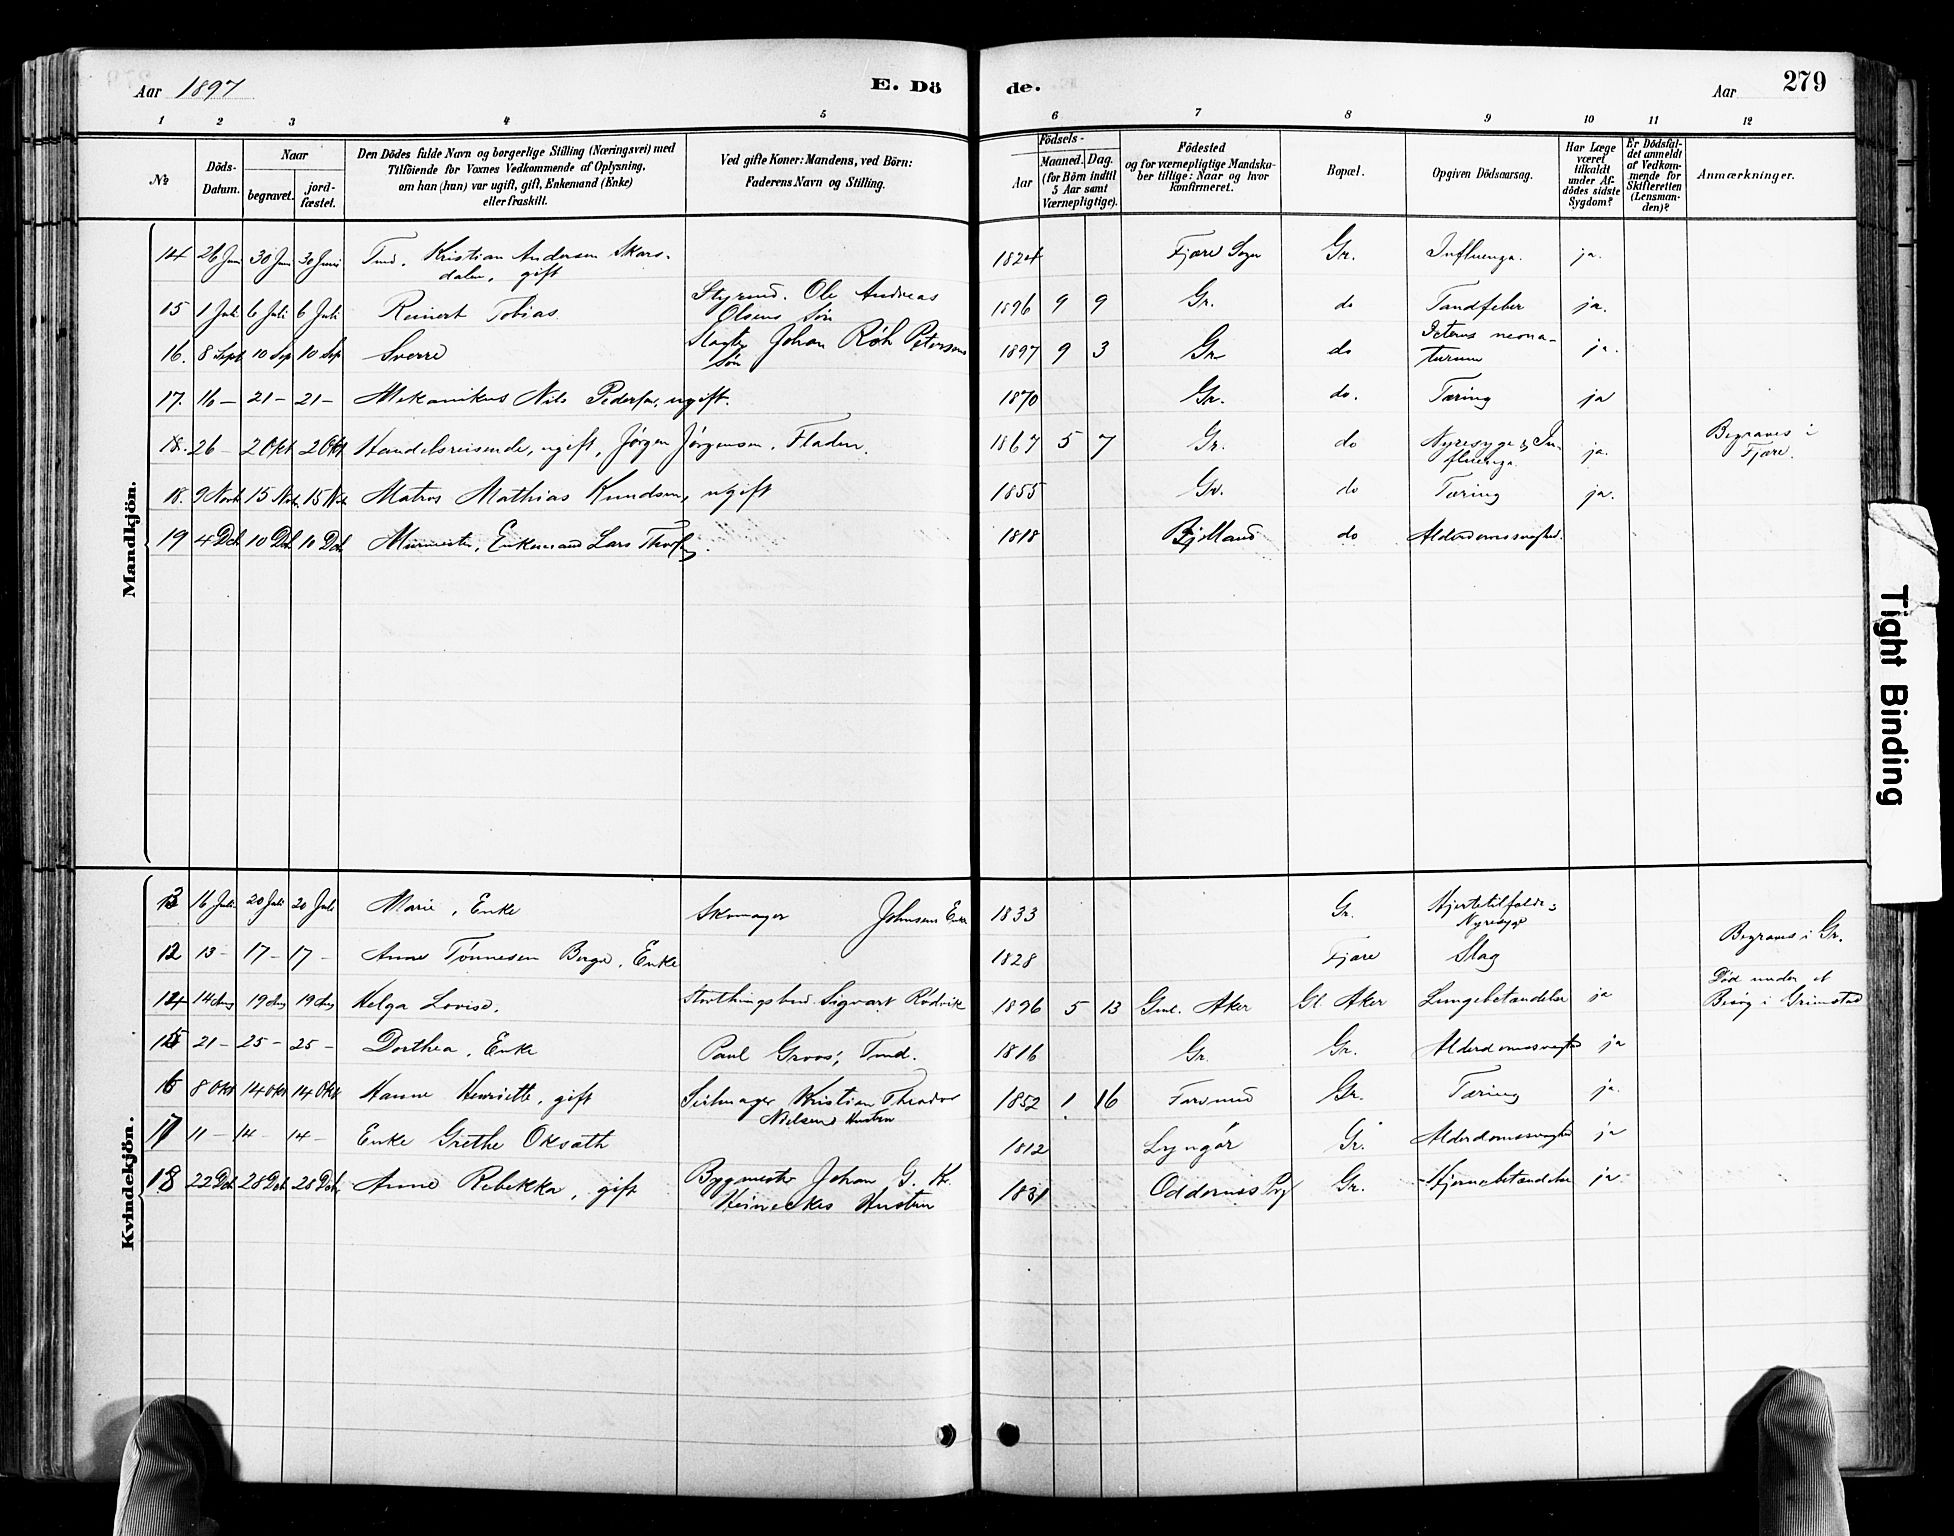 Aar 1897 E. Dö de. Aar 279
1 2 3 4 5 6 7 8 9 10 11 12
№
Döds-Datum.
Naar
begravet. jordfæstet.
Den Dödes fulde Navn og borgerlige Stilling (Næringsvei) med
Tilföiende for Voxnes Vedkommende af Oplysning,
om han (hun) var ugift, gift, Enkemand (Enke)
eller fraskilt.
Ved gifte Koner: Mandens, ved Börn:
Faderens Navn og Stilling.
Födsels-
Aar Maaned. Dag.
(for Börn indtil
5 Aar samt
Værnepligtige).
Födested
og for værnepligtige Mandska-
ber tillige: Naar og hvor
konfirmeret.
Bopæl.
Opgiven Dödsaarsag.
Har Læge
været
tilkaldt
under Af-
dödes sidste
Sygdom?
Er Dödsfal-
det anmeldt
af Vedkom-
mende for
Skifteretten
(Lensman-
den)?
Anmærkninger.
Mandkjön.
14 26 Juni 30 Juni 30 Juni Tmd. Kristian Andersen Skars- 1824 Fjære Sogn Gr. Influenza. ja.
dalen, gift
15 1 Juli 6 Juli 6 Juli Reinert Tobias Styrmd. Ole Andreas 1896 9 9 Gr. do Tandfeber ja.
Olsens Søn
16. 8 Sept 10 Sep 10 Sep Sverre Slagter Johan Røh Petersens 1897 9 3 Gr. do Icterus neona- ja.
Søn torum
17. 16 – 21 – 21 – Mekanikus Nils Pedersen, ugift. 1870 Gr. do. Tæring ja
18. 26 – 2 Okt 2 Okt Handelsreisende, ugift, Jørgen Jørgensen, Fladen. 1867 5 7 Gr. do Nyresyge & In- ja. Begraves i
fluenza. Fjære.
18. 9 Novb 15 Nov. 15 Nov Matros Mathias Knudsen, ugift 1855 Gr. do Tæring ja.
19 4 Dcb 10 Dcb 10 Dcb Murmester, Enkemand Lars 1818 Bjelland do Alderdomssvaghed.
Kvindekjön.
13 16 Juli 20 Juli 20 Juli Marie, Enke Skomager Johnsens Enke 1833 Gr. Hjertetilfælde &
Nyresyge
12 13 – 17 – 17 – Anne Tønnesen Berge, Enke 1828 Fjære Slag Begraves i Gr.
14 14 Aug 19 Aug 19 Aug Helga Lovise. Storthingsbud Sigvart Rødvik 1896 5 13 Gml. Aker Gl. Aker Lungebetændelse ja Død under et
Besøg i Grimstad
15 21 – 25 – 25 – Dorthea, Enke Paul Groos, Tmd. 1816 Gr. Gr. Alderdomssvaghed ja
16 8 Okt 14 Okt 14 Okt Hanne Henriette, gift Seilmager Kristian Theodor 1852 1 16 Farsund Gr. Tæring ja.
Nielsens Hustru
17 11 – 14 – 14 – Enke Grethe Oksath 1812 Lyngør Gr. Alderdomssvaghed ja
18 22 Dcb 28 Dcb 28 Dcb Anne Rebekka, gift Bygmester Johan G. K. 1831 Oddernes Prg Gr. Hjernebetændelse ja
Heineckes Hustru
Tight Binding